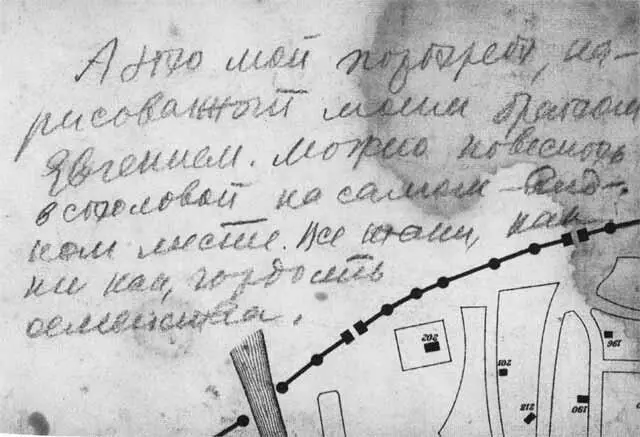 А это мой портрет, на-
рисованный моим братом
Евгением. Можно повесить
в столовой на самом вид-
ном месте. Все таки, как
ни как, гордость
семейства.
202
201
212
196
190